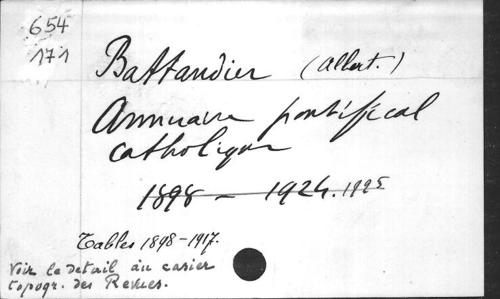 654
171
Battandier (Albert.)
Annuaire pontifical
catholique
1898 – 1924. 1925
Tables 1898-1917.
Voir le détail au casier
topogr. des Revues.